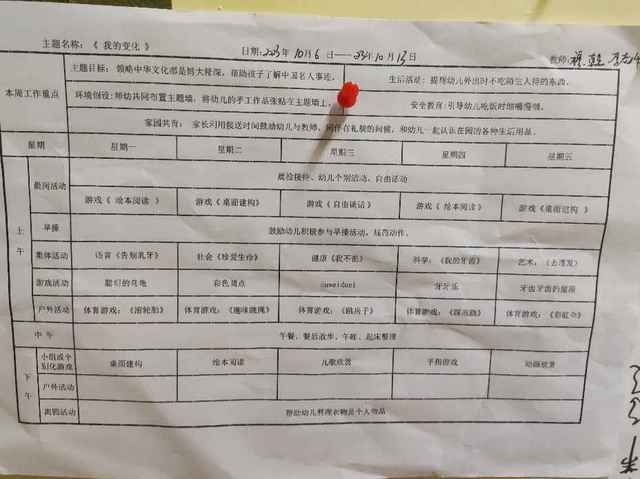 主题名称：《 我的变化 》
日期: 2023年 10月 6日 —— 23年 10月 13日
教师:
本周工作重点
主题目标：领略中华文化都是博大精深，帮助孩子了解中国名人事迹。
生活活动：提帮幼儿外出时不吃陌生人待的东西。
环境创设:师幼共同布置主题墙，将幼儿的手工作品张贴在主题墙上。
安全教育:引导幼儿吃饭时细嚼慢咽。
家园共育： 家长利用接送时间鼓励幼儿与教师、同伴有礼貌的问候，和幼儿一起认识在园清各种生活用品。
星期 星期一 星期二 星期三 星期四 星期五
上午
晨间活动
晨检接待、幼儿个别活动、自由活动
游戏《 绘本阅读 》 游戏《 桌面建构》 游戏《 自由谈话》 游戏《 绘本阅读》 游戏《桌面建构 》
早操 鼓励幼儿积极参与早操活动，规范动作。
集体活动 语言《告别乳牙》 社会《珍爱生命》 健康《我不能》 科学：《我的牙齿》 艺术：《去理发》
游戏活动 聪明的乌龟 彩色周点 牙牙乐 牙齿牙齿扔屋顶
户外活动 体育游戏：《滚轮胎》 体育游戏：《趣味跳绳》 体育游戏：《跳房子》 体育游戏：《踩高跷》 体育游戏：《彩虹伞》
中午 午餐、餐后散步、午睡、起床整理
下午
小组或个别化游戏 桌面建构 绘本阅读 儿歌欣赏 手指游戏 动画欣赏
户外活动
离园活动 帮助幼儿整理衣物是个人物品